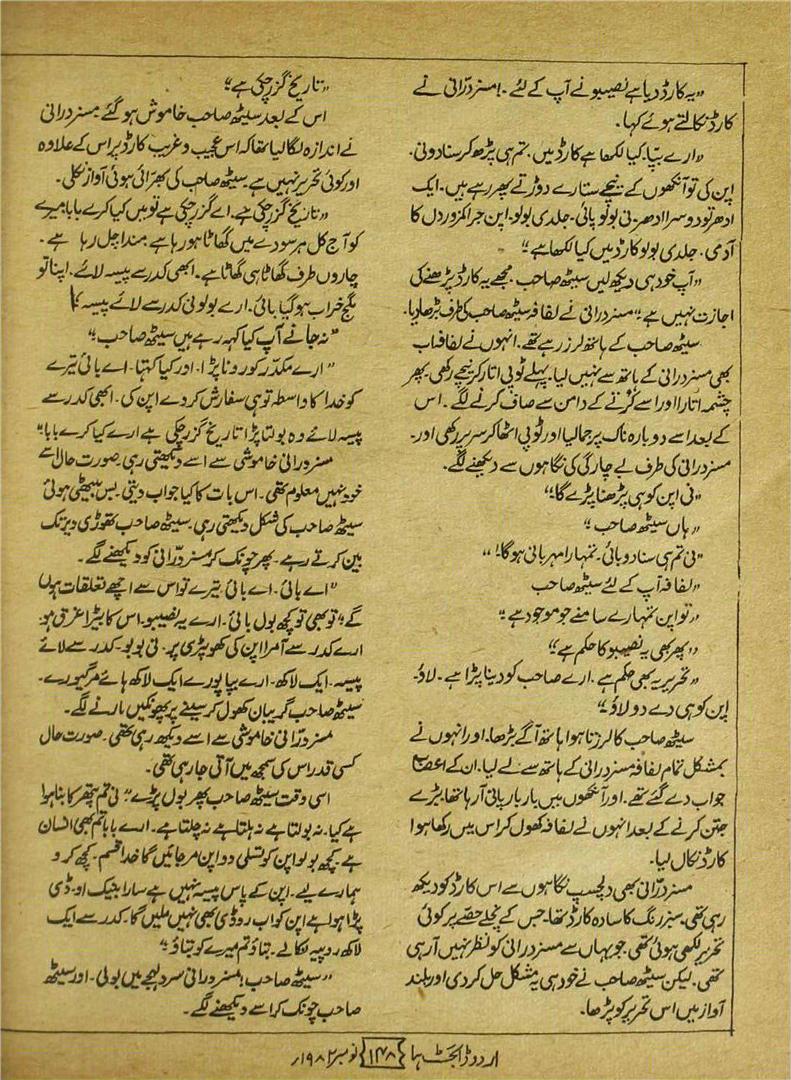 ”یہ کارڈ دیا ہے نصیبو نے آپ کے لئے۔“ مسز درّانی نے
کارڈ نکالتے ہوئے کہا۔
”ارے بپّا، کیا لکھا ہے کارڈ میں۔ تم ہی پڑھ کر سنا دونی۔
اپن کی تو آنکھوں کے نیچے ستارے دوڑتے پھر رہے ہیں۔ ایک
ادھر تو دوسرا ادھر۔ نی بولو بائی۔ جلدی بولو۔ اپن جرا کمزور دل کا
آدمی۔ جلدی بولو کارڈ میں کیا لکھا ہے؟“
”آپ خود ہی دیکھ لیں سیٹھ صاحب۔ مجھے یہ کارڈ پڑھنے کی
اجازت نہیں ہے۔“ مسز درانی نے لفافہ سیٹھ صاحب کی طرف بڑھا دیا۔
سیٹھ صاحب کے ہاتھ لرز رہے تھے۔ انہوں نے لفافہ اب
بھی مسز درانی کے ہاتھ سے نہیں لیا۔ پہلے ٹوپی اتار کر نیچے رکھی۔ پھر
چشمہ اتارا اور اسے کُرتے کے دامن سے صاف کرنے لگے۔ اس
کے بعد اسے دوبارہ ناک پر جمالیا اور ٹوپی اٹھا کر سر پر رکھی اور۔
مسز درانی کی طرف بے چارگی کی نگاہوں سے دیکھنے لگے۔
”نی اپن کو ہی پڑھنا پڑے گا؟“
”ہاں سیٹھ صاحب۔“
”نی تم ہی سنا دو بائی۔ تمہارا مہربانی ہوگا۔“
”لفافہ آپ کے لئے سیٹھ صاحب
”تو اپن تمہارے سامنے جو موجود ہے۔“
”پھر بھی یہ نصیبو کا حکم ہے؟“
”تحریر یہ بھی حکم ہے۔ ارے صاحب کو دینا پڑا ہے۔ لاؤ۔
اپن کو ہی دے دو لاؤ۔“
سیٹھ صاحب کا لرزتا ہوا ہاتھ آگے بڑھا۔ اور انہوں نے
بمشکل تمام لفافہ مسز درانی کے ہاتھ سے لے لیا۔ ان کے اعصاب
جواب دے گئے تھے۔ اور آنکھوں میں بار بار پانی آ رہا تھا۔ بڑے
جتن کرنے کے بعد انہوں نے لفافہ کھول کر اس میں رکھا ہوا
کارڈ نکال لیا۔
مسز درّانی بھی دلچسپ نگاہوں سے اس کارڈ کو دیکھ
رہی تھی۔ سبز رنگ کا سادہ کارڈ تھا۔ جس کے نچلے حصّے پر کوئی
تحریر لکھی ہوئی تھی۔ جو یہاں سے مسز درانی کو نظر نہیں آ رہی
تھی۔ لیکن سیٹھ صاحب نے خود ہی یہ مشکل حل کر دی اور بلند
آواز میں اس تحریر کو پڑھا۔
”تاریخ گزر چکی ہے۔“
اس کے بعد سیٹھ صاحب خاموش ہو گئے۔ مسز درانی
نے اندازہ لگا لیا تھا کہ اس عجیب و غریب کارڈ پر اس کے علاوہ
اور کوئی تحریر نہیں ہے۔ سیٹھ صاحب کی بھرائی ہوئی آواز نکلی۔
”تاریخ گزر چکی ہے۔ اے گزر چکی ہے تو میں کیا کرے بابا میرے
کو آج کل ہر سودے میں گھاٹا ہو رہا ہے۔ مندا چل رہا ہے۔
چاروں طرف گھاٹا ہی گھاٹا ہے۔ ابھی کدر سے پیسہ لائے۔ اپنا تو
بھیجہ خراب ہو گیا بائی۔ ارے بولو نی کدر سے لائے پیسہ؟“
”نہ جانے آپ کیا کہہ رہے ہیں سیٹھ صاحب؟“
”ارے مکدّر کو رونا پڑا۔ اور کیا کہتا۔ اے بائی تیرے
کو خدا کا واسطہ تو ہی سفارش کر دے اپن کی۔ ابھی کدر سے
پیسہ لائے وہ بولتا پڑا تاریخ گزر چکی ہے ارے کیا کرے بابا۔“
مسز درانی خاموشی سے اسے دیکھتی رہی۔ صورت حال اسے
خود نہیں معلوم تھی۔ اس بات کا کیا جواب دیتی۔ بس بیٹھی ہوئی
سیٹھ صاحب کی شکل دیکھتی رہی۔ سیٹھ صاحب تھوڑی دیر تک
بین کرتے رہے۔ پھر چونک کر مسز درّانی کو دیکھنے لگے۔
”اے بائی۔ اے بائی۔ تیرے تو اس سے اچھے تعلقات ہوں
گے؟ تو بھی تو کچھ بول بائی۔ ارے یہ نصیبو۔ اس کا بیڑا غرق ہو۔
ارے کدر سے آمرا اپن کی کھوپڑی پر۔ نی بولو۔ کدر سے لائے
پیسہ۔ ایک لاکھ۔ ارے بپا پورے ایک لاکھ ہائے مر گیورے۔
سیٹھ صاحب گریبان کھول کر سینے پر پھونکیں مارنے لگے۔
مسز درّانی خاموشی سے اسے دیکھ رہی تھی۔ صورت حال
کسی قدر اس کی سمجھ میں آتی جا رہی تھی۔
اسی وقت سیٹھ صاحب پھر بول پڑے۔ ”نی تم پتھر کا بنا ہوا
ہے کیا۔ نہ بولتا ہے نہ ہلتا ہے نہ چلتا ہے۔ ارے بابا تم بھی انسان
ہے۔ کچھ بولو اپن کو تسلی دو اپن مر جائیں گا خدا قسم۔ کچھ کرو
ہمارے لیے۔ اپن کے پاس پیسہ نہیں ہے سارا بینک او۔ ڈی
پڑا ہوا ہے اپن کو اب روڈی بھی نہیں ملیں گا۔ کدر سے ایک
لاکھ روپیہ نکالے۔ بتاؤ تم میرے کو بتاؤ۔“
”سیٹھ صاحب!“ مسز درانی سرد لہجے میں بولی۔ اور سیٹھ
صاحب چونک کر اسے دیکھنے لگے۔
اردو ڈائجسٹ ہما ۱۴۸ نومبر ۱۹۸۲ء